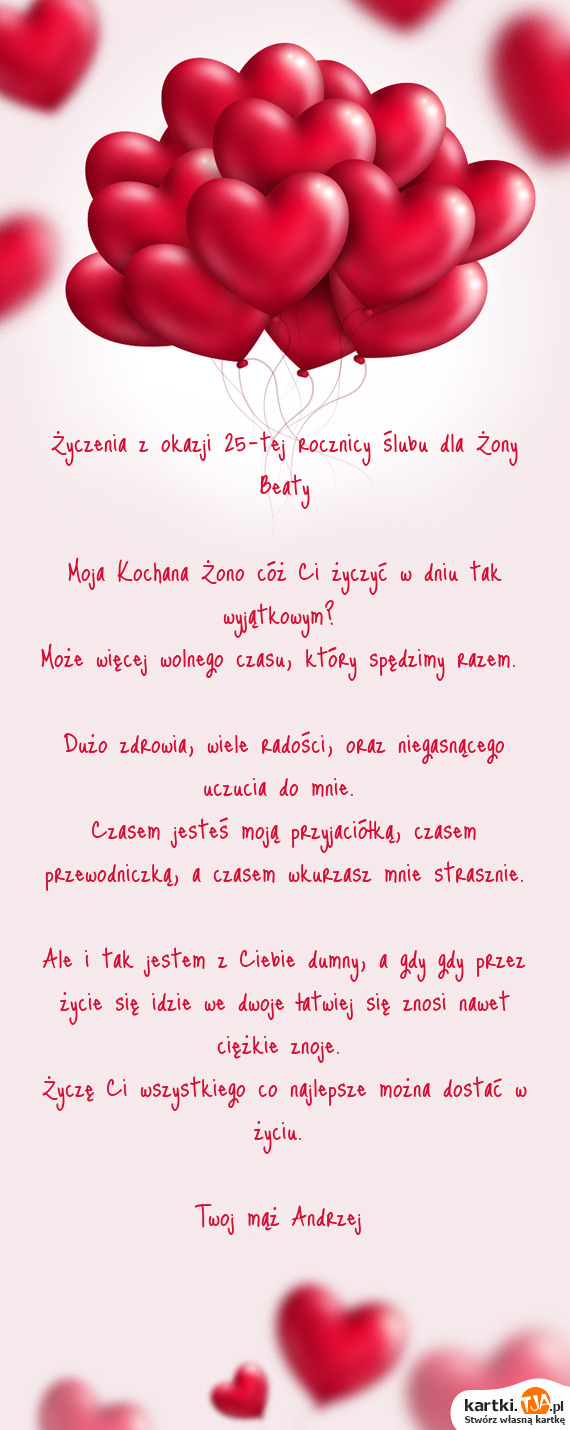 Życzenia z okazji 25-tej rocznicy ślubu dla Żony
Beaty
Moja Kochana Żono cóż Ci życzyć w dniu tak
wyjątkowym?
Może więcej wolnego czasu, który spędzimy razem.
Dużo zdrowia, wiele radości, oraz niegasnącego
uczucia do mnie.
Czasem jesteś moją przyjaciółką, czasem
przewodniczką, a czasem wkurzasz mnie strasznie.
Ale i tak jestem z Ciebie dumny, a gdy gdy przez
życie się idzie we dwoje łatwiej się znosi nawet
ciężkie znoje.
Życzę Ci wszystkiego co najlepsze można dostać w
życiu.
Twoj mąż Andrzej
kartki.TJA.pl
Stwórz własną kartkę